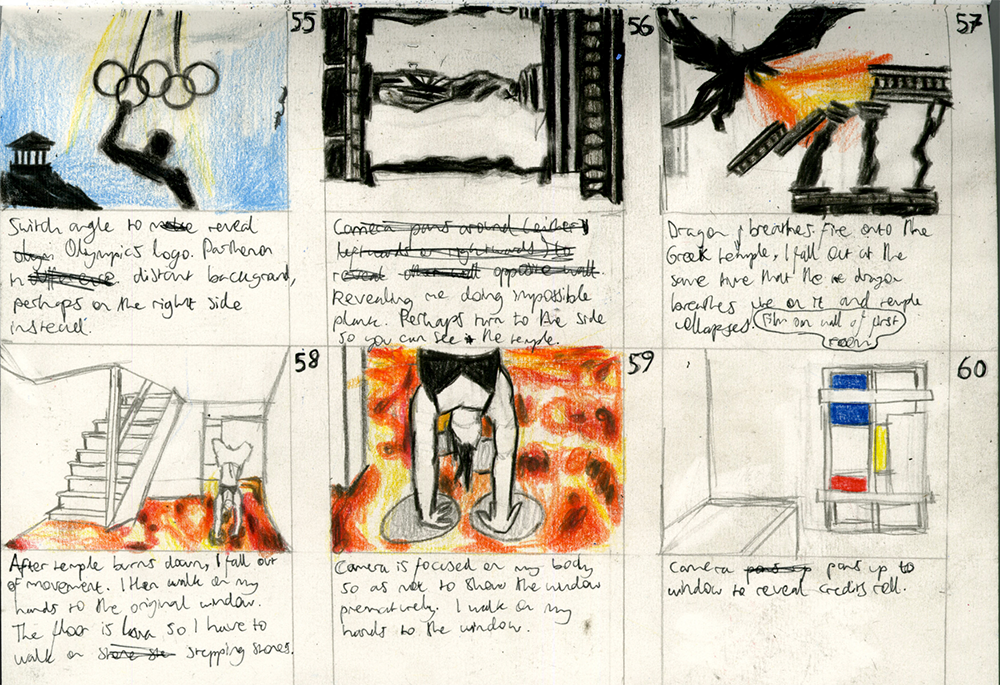 55
Switch angle to reveal
Olympics logo. Parthenon
in distant background,
perhaps on the right side
instead.
56
Camera pans around (either
leftwards or rightwards) to
reveal opposite wall.
Revealing me doing impossible
plank. Perhaps turn to the side
so you can see the temple.
57
Dragon breathes fire onto the
Greek temple, I fall out at the
same time that the dragon
breathes fire on it and temple
collapses. Film on wall of first
room
58
After temple burns down, I fall out
of movement. I then walk on my
hands to the original window.
The floor is lava so I have to
walk on stepping stones.
59
Camera is focused on my body
so as not to show the window
prematurely. I walk on my
hands to the window.
60
Camera pans up to
window to reveal credits roll.